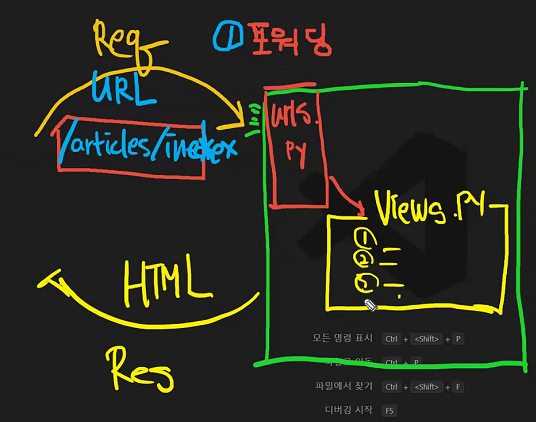 Req
① 포워딩
URL
/articles/index
urls.
py
Views.PY
HTML
Res
모든 명령 표시 Ctrl + <Shift> + P
Ctrl + P
파일에서 찾기 Ctrl + <Shift> + F
디버깅 시작 F5